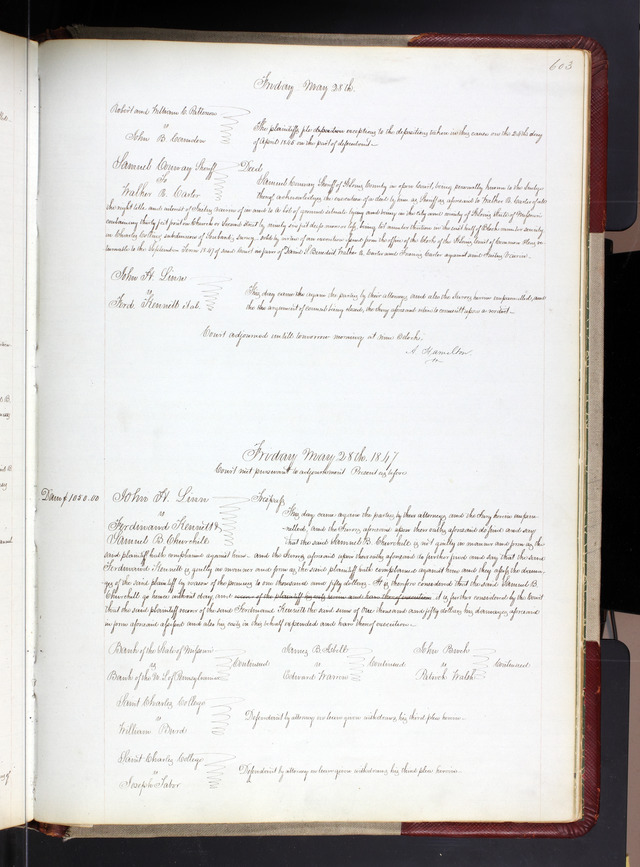 603
Friday May 28th.
Robert and William C. Patterson
vs
John B. Camden
The plaintiffs file deposition excepting to the depositions taken in this cause on the 28th day
of April 1846 on the part of defendants.
Samuel Conway Sheriff
To
Walker R. Carter
Deed
Samuel Conway Sheriff of St Louis County in open Court, being personally known to the Judges
thereof acknowledges the execution of a deed by him as Sheriff as aforesaid to Walker R. Carter of all
the right title and interest of in and to a lot of ground situate lying and being in the city and county of St Louis State of Missouri
containing thirty feet front on Church or Second Street by ninety six feet deep more or less, being lot number thirteen in the east half of Block number seventy
in sold by virtue of an execution issued from the office of the Clerk of the St Louis Court of Common Pleas re-
turnable to the September Term 1847 of said Court in favor of Walker R. Carter and Carter against
John H. Linn
vs
Ferd. Kennett et als
This day came the again the parties by their attorneys and also the Jurors herein empannelled, and
the the argument of counsel being closed, the Jury aforesaid retire to consider upon a verdict.
Court adjourned untill tomorrow morning at nine Oclock.
A. Hamilton
Friday May 28th. 1847
Court met pursuant to adjournment Present as before
Dam$ 1050.00
John H. Linn
vs
Ferdinand Kennett &
Samuel B. Churchill
Trespass
This day came again the parties by their attorneys, and the Jury herein empan-
nelled, and the Jurors aforesaid upon their oaths aforesaid do find and say
that the said Samuel B. Churchill is not guilty in manner and form as the
said plaintiff hath complained against him. and the Jurors aforesaid upon their oaths aforesaid do further find and say that the said
Ferdinand Kennett is guilty in manner and form as the said plaintiff hath complained against him and they assess the dama-
ges of the said plaintiff by reason of the premises to one thousand and fifty dollars. It is therefore considered that the said Samuel B.
Churchill go hence without day, and recover of the plaintiff his costs herein and have thereof execution it is further considered by the Court
that the said plaintiff recover of the said Ferdinand Kennett the said sum of One thousand and fifty dollars his damages aforesaid
in form aforesaid assessed and also his costs in this behalf expended and have thereof execution.
Bank of the State of Missouri
vs
Bank of the U. S. of Pennsylvania
Continued
James B.
vs
Edward Warren
Continued
John
vs
Patrick Walsh
Continued
Saint Charles College
vs
William Bird
Defendant by attorney on leave given withdraws his third plea herein.
Saint Charles College
vs
Joseph Tabor
Defendant by attorney on leave given withdraws his third plea herein.